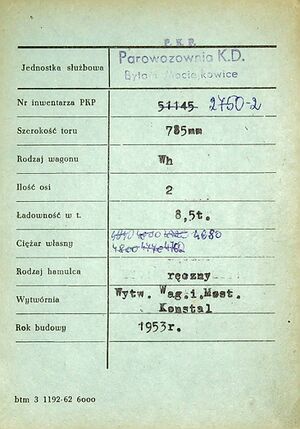 P. K. P.
Jednostka służbowa Parowozownia K.D.
Bytom Maciejkowice
Nr inwentarza PKP 51145 2750-2
Szerokość toru 785mm
Rodzaj wagonu Wh
Ilość osi 2
Ładowność w t. 8,5t.
Ciężar własny 4680
Rodzaj hamulca ręczny
Wytwórnia Wytw. Wag.i.Most.
Konstal
Rok budowy 1953r.
btm 3 1192-62 6000